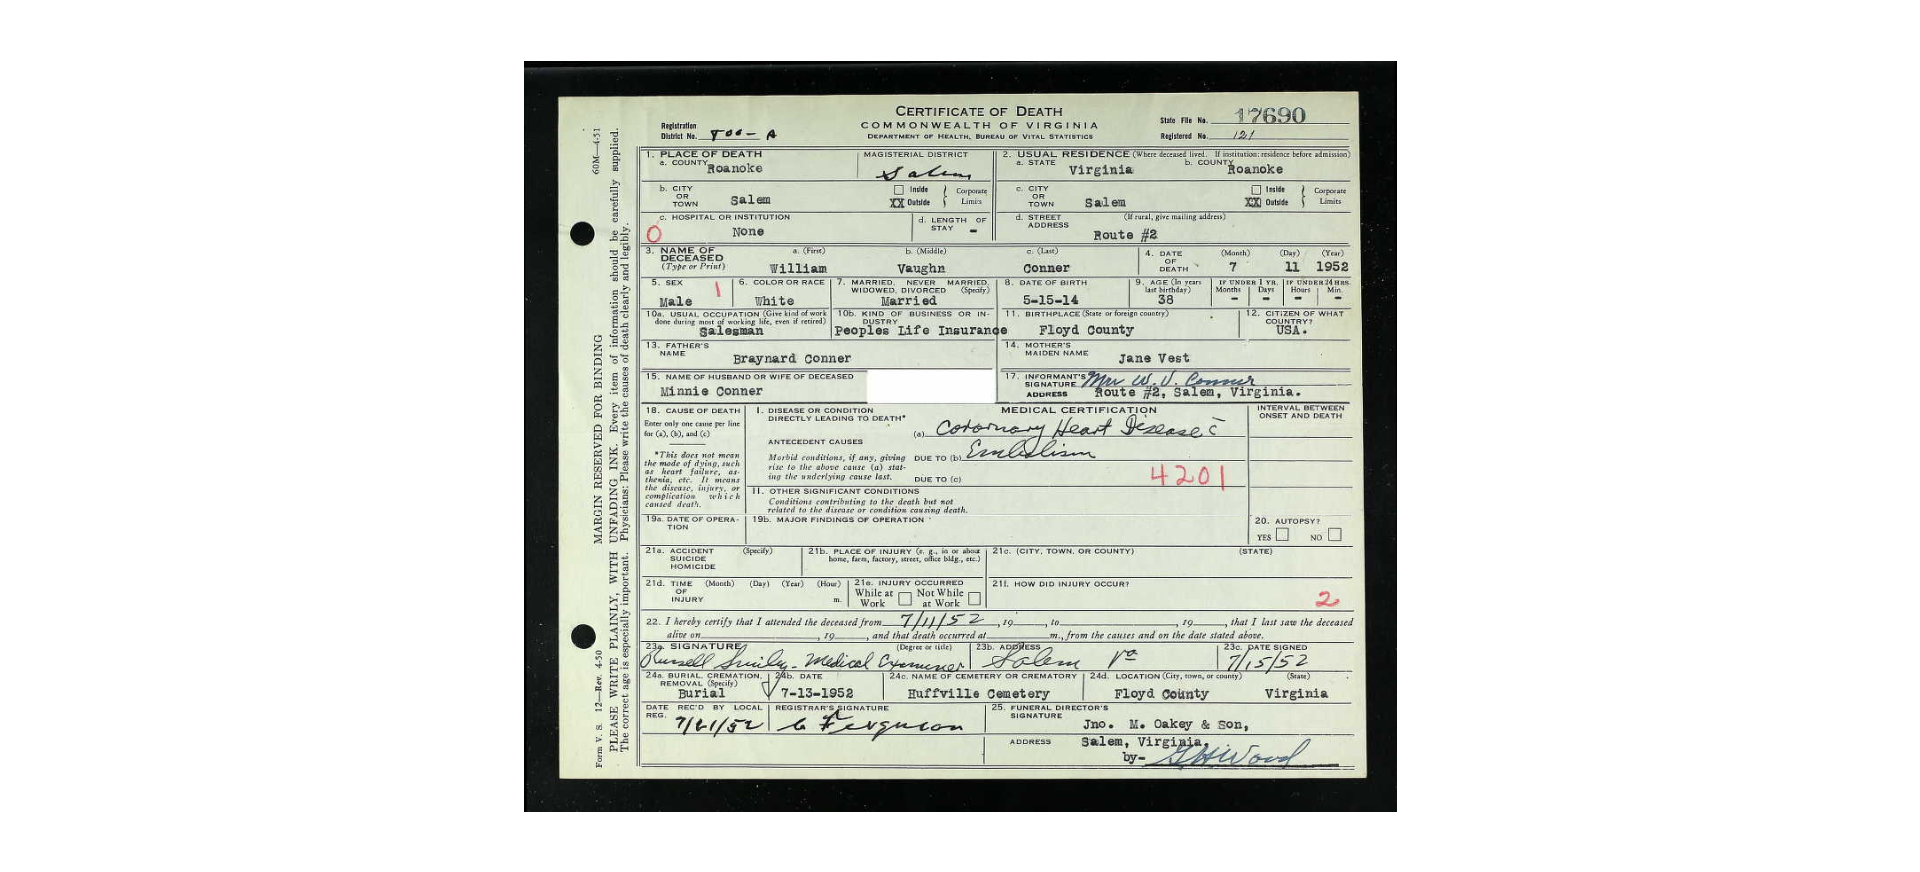 CERTIFICATE OF DEATH
COMMONWEALTH OF VIRGINIA
DEPARTMENT OF HEALTH, BUREAU OF VITAL STATISTICS
Registration District No. 800-A
State File No. 17690
Registered No. 121
1. PLACE OF DEATH
a. COUNTY Roanoke
MAGISTERIAL DISTRICT Salem
2. USUAL RESIDENCE (Where deceased lived. If institution: residence before admission)
a. STATE Virginia
b. COUNTY Roanoke
b. CITY OR TOWN Salem
Inside XX Outside Corporate Limits
c. CITY OR TOWN Salem
Inside XX Outside Corporate Limits
c. HOSPITAL OR INSTITUTION None
0
d. LENGTH OF STAY -
d. STREET ADDRESS (If rural, give mailing address) Route #2
3. NAME OF DECEASED (Type or Print)
a. (First) William
b. (Middle) Vaughn
c. (Last) Conner
4. DATE OF DEATH (Month) 7 (Day) 11 (Year) 1952
5. SEX Male 1
6. COLOR OR RACE White
7. MARRIED, NEVER MARRIED, WIDOWED, DIVORCED (Specify) Married
8. DATE OF BIRTH 5-15-14
9. AGE (In years last birthday) 38
IF UNDER 1 YR. Months - Days -
IF UNDER 24 HRS. Hours - Min. -
10a. USUAL OCCUPATION (Give kind of work done during most of working life, even if retired) Salesman
10b. KIND OF BUSINESS OR INDUSTRY Peoples Life Insurance
11. BIRTHPLACE (State or foreign country) Floyd County
12. CITIZEN OF WHAT COUNTRY? USA.
13. FATHER'S NAME Braynard Conner
14. MOTHER'S MAIDEN NAME Jane Vest
15. NAME OF HUSBAND OR WIFE OF DECEASED Minnie Conner
17. INFORMANT'S SIGNATURE Mrs W. V. Conner
ADDRESS Route #2, Salem, Virginia.
18. CAUSE OF DEATH
Enter only one cause per line for (a), (b), and (c)
*This does not mean the mode of dying, such as heart failure, asthenia, etc. It means the disease, injury, or complication which caused death.
MEDICAL CERTIFICATION
INTERVAL BETWEEN ONSET AND DEATH
I. DISEASE OR CONDITION DIRECTLY LEADING TO DEATH*
(a) Coronary Heart Disease c̄
ANTECEDENT CAUSES
Morbid conditions, if any, giving rise to the above cause (a) stating the underlying cause last.
DUE TO (b) Embolism
DUE TO (c)
4201
II. OTHER SIGNIFICANT CONDITIONS
Conditions contributing to the death but not related to the disease or condition causing death.
19a. DATE OF OPERATION
19b. MAJOR FINDINGS OF OPERATION
20. AUTOPSY?
YES NO
21a. ACCIDENT SUICIDE HOMICIDE (Specify)
21b. PLACE OF INJURY (e. g., in or about home, farm, factory, street, office bldg., etc.)
21c. (CITY, TOWN, OR COUNTY) (STATE)
21d. TIME OF INJURY (Month) (Day) (Year) (Hour) m.
21e. INJURY OCCURRED While at Work Not While at Work
21f. HOW DID INJURY OCCUR?
2
22. I hereby certify that I attended the deceased from 7/11/52, 19, to , 19, that I last saw the deceased
alive on , 19, and that death occurred at m., from the causes and on the date stated above.
23a. SIGNATURE (Degree or title) Russell Smiley - Medical Examiner
23b. ADDRESS Salem Va
23c. DATE SIGNED 7/15/52
24a. BURIAL, CREMATION, REMOVAL (Specify) Burial
24b. DATE 7-13-1952
24c. NAME OF CEMETERY OR CREMATORY Huffville Cemetery
24d. LOCATION (City, town, or county) (State) Floyd County Virginia
DATE REC'D BY LOCAL REG. 7/21/52
REGISTRAR'S SIGNATURE C Ferguson
25. FUNERAL DIRECTOR'S SIGNATURE Jno. M. Oakey & Son,
ADDRESS Salem, Virginia,
by- Wood
Form V. S. 12—Rev. 4-50
60M—4-51
MARGIN RESERVED FOR BINDING
PLEASE WRITE PLAINLY, WITH UNFADING INK. Every item of information should be carefully supplied.
The correct age is especially important. Physicians: Please write the causes of death clearly and legibly.